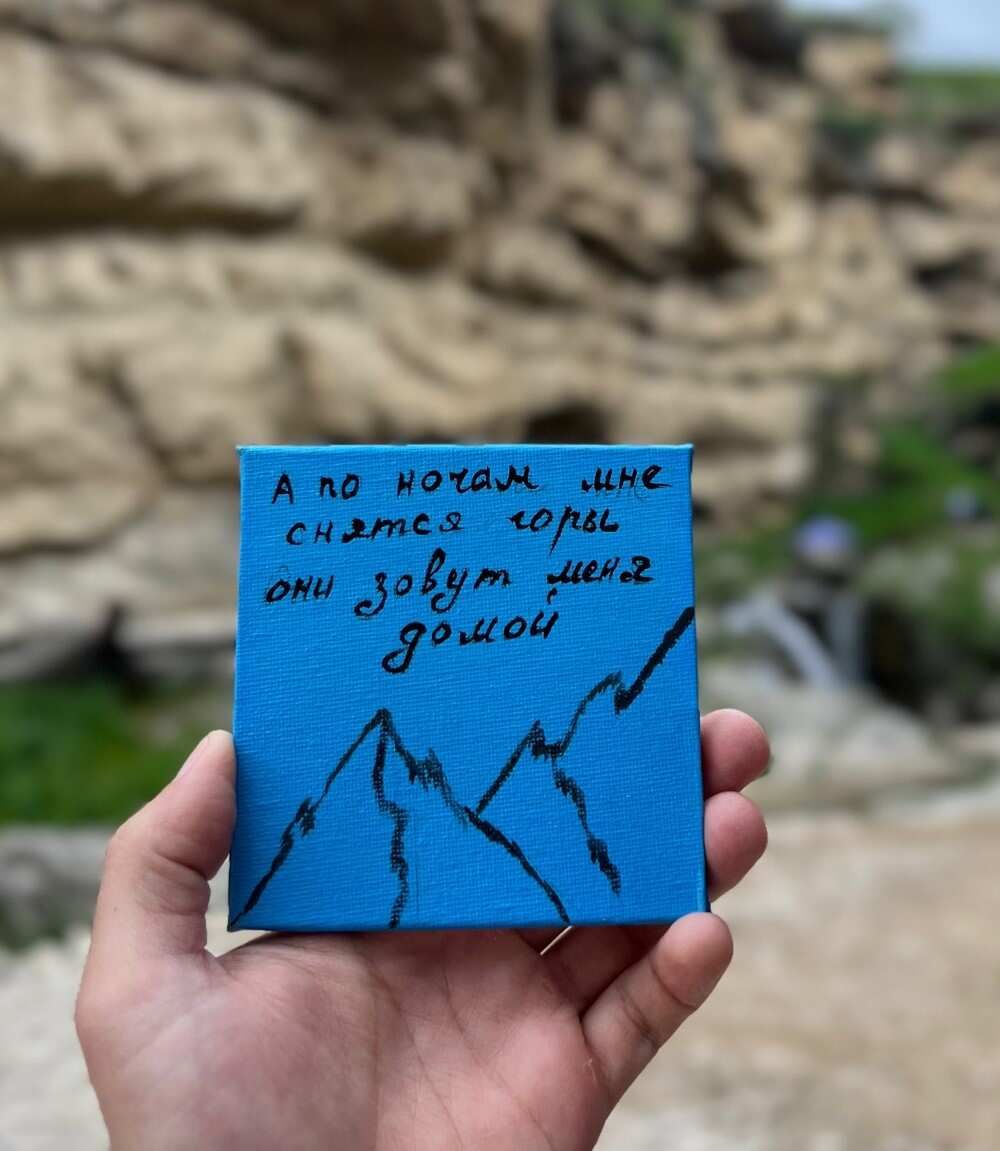 А по ночам мне
снятся горы
они зовут меня
домой